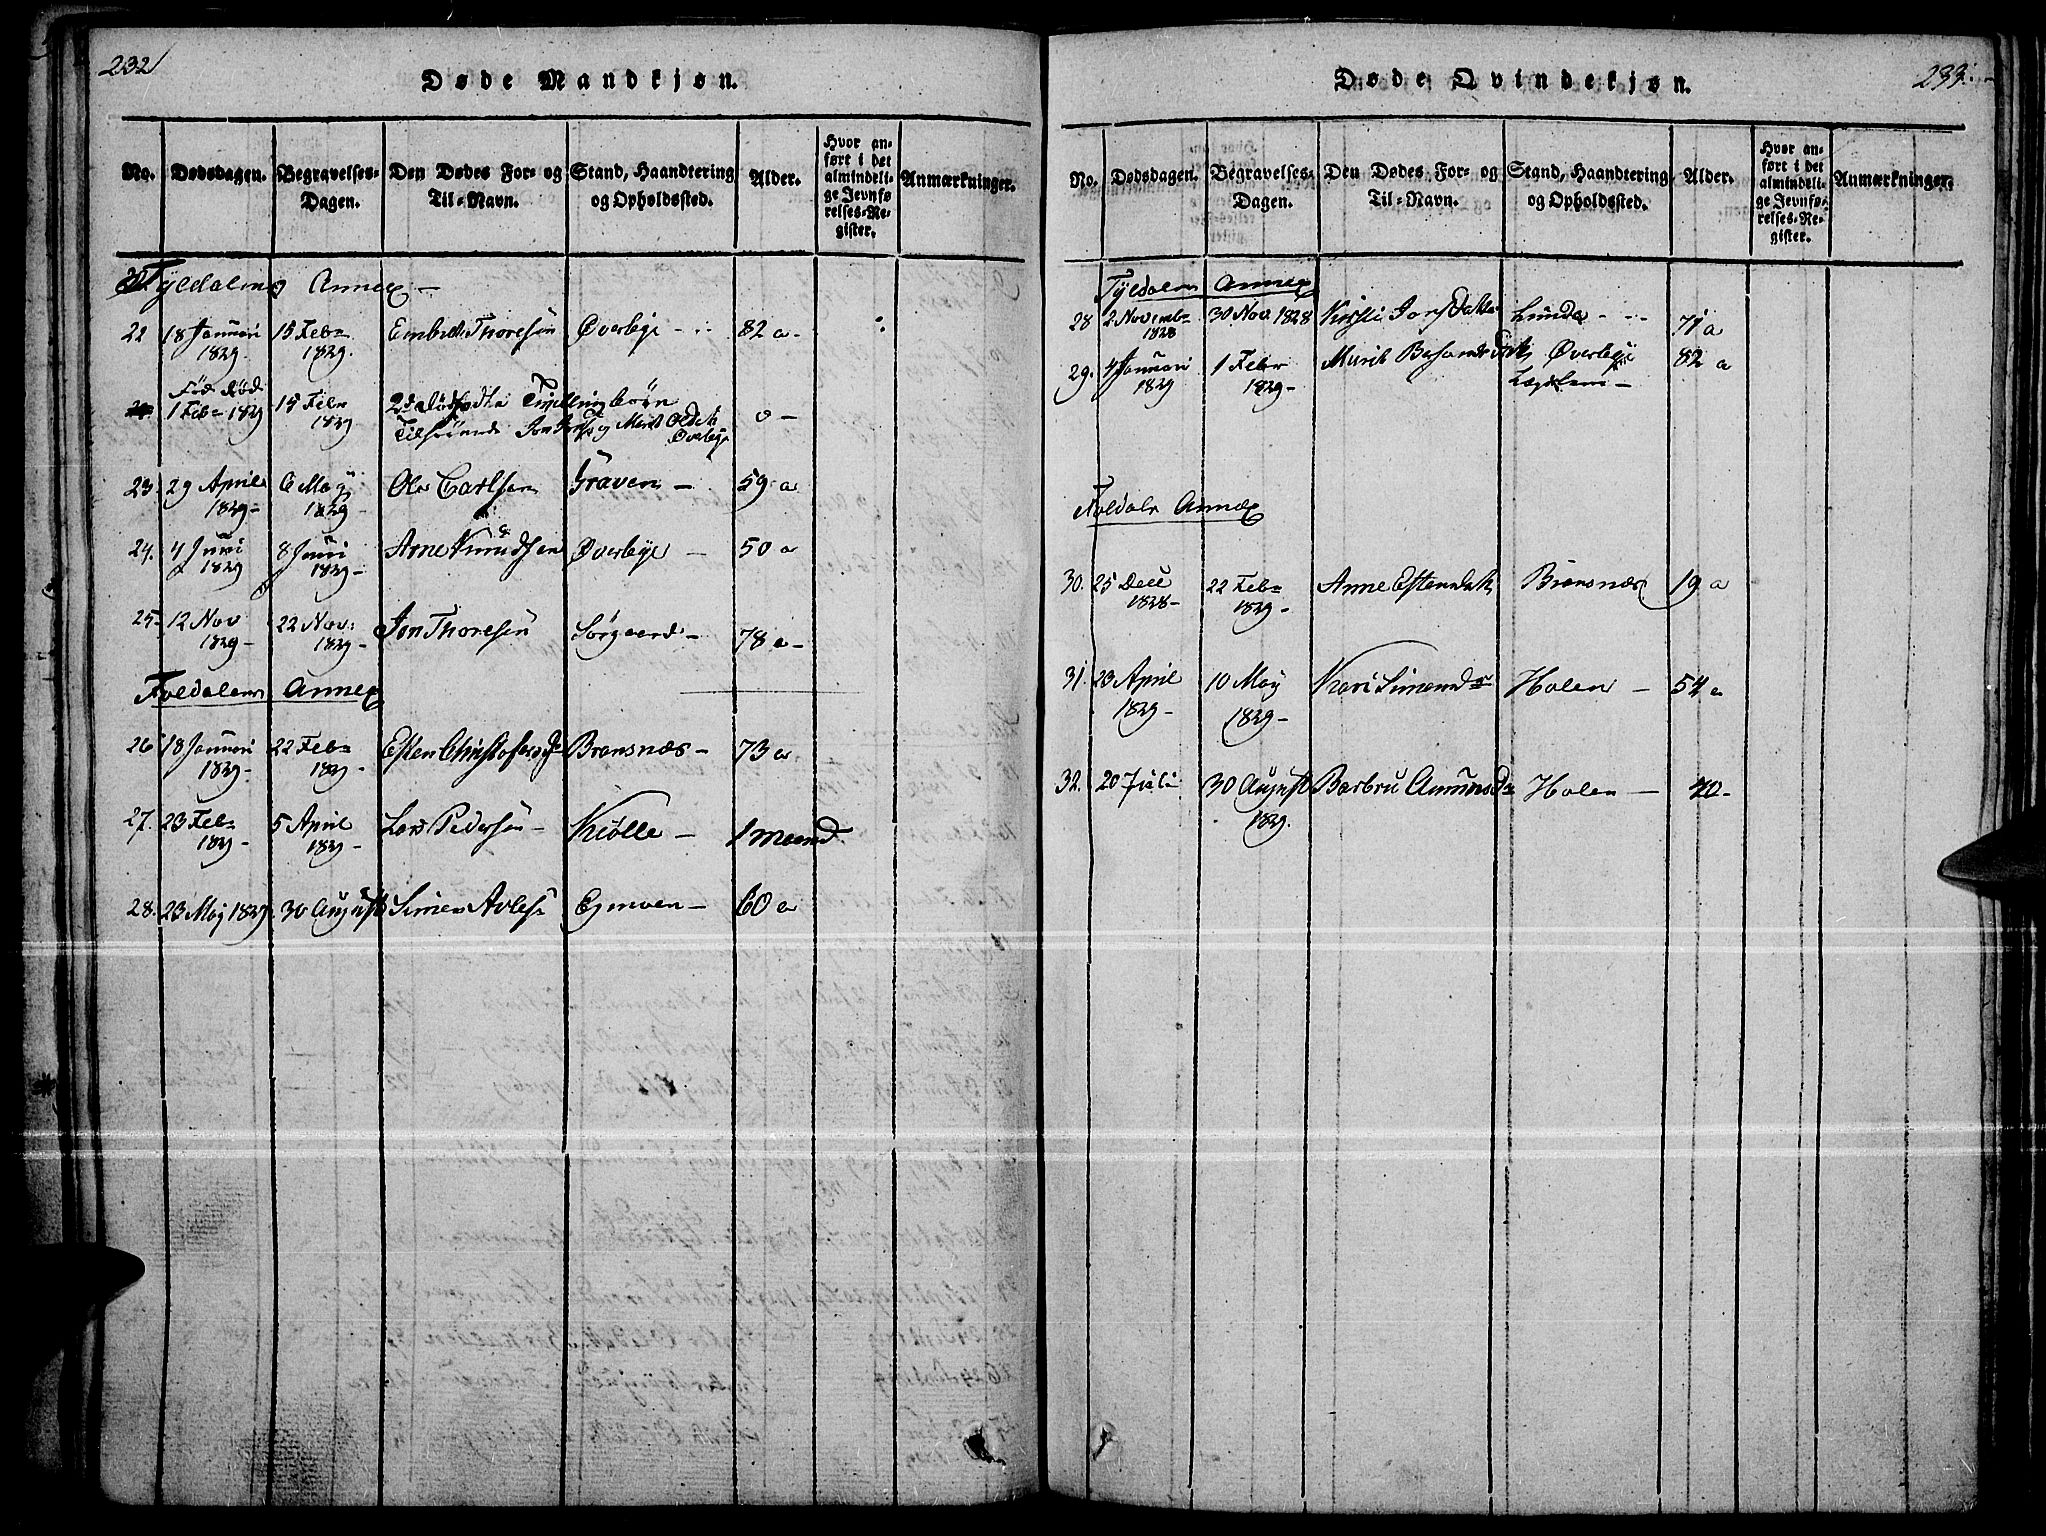 232
Døde Mandkjøn.
No. Dødsdagen. Begravelses-Dagen. Den Dødes For- og Til-Navn. Stand, Haandtering og Opholdssted. Alder. Hvor anført i det almindelige Jevnførelses-Register. Anmærkninger.
Tyldalens Annex –
22 18 Januari 1829. 15 Febr 1829. Embret Thoresøn Øverbye 82 a –
Fød død 1 Febr 1829 15 Febr 1829 2de dødfødte Tvillingbørn
Jon og Marit Øverbye 0 –
23 29 Aprile 1829 – 6 May 1829 – Ole Carlsen Graven – 59 a
24. 4 Juni 1829 8 Juni 1829 – Arne Knudsen Øverbye – 50 a
25 – 12 Nov 1829 – 22 Nov: 1829 – Jon Thoresøn Sørgaard – 78 a –
Foldalens Annex
26 18 Januari 1829 – 22 Febr 1829 – Esten Christophersen Brænsnæs – 73 a
27. 23 Febr 1829 – 5 April 1829 – Lars Pedersøn – Kiølle – 1 maaned
28. 23 May 1829. 30 August Simen Egmoen – 60 a
233.
Døde Qvindekjøn.
No. Dødsdagen. Begravelses-Dagen. Den Dødes For- og Til-Navn. Stand, Haandtering og Opholdssted. Alder. Hvor anført i det almindelige Jevnførelses-Register. Anmærkninger.
Tyldalens Annex
28 2 Novembr 1828 30 Nov 1828 Kirsti Datter Lunde 71 a
29. 4 Januari 1829 1 Febr 1829 – Marit Øverbye 82 a
Foldals Annex
30. 25 Dece 1828 – 22 Febr 1829 – Anne Estensdatr Brænsnæs 19 a
31. 23 April 1829 – 10 May 1829 – Kari Simensdr Holen – 54 a
32. 20 Juli 30 August 1829. Barbru Amunsdr Holen – 70 –